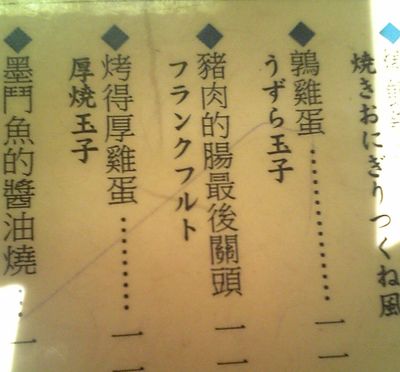 焼きおにぎりつくね風
鶉雞蛋…………一一
うずら玉子
豬肉的腸最後關頭 一一
フランクフルト
烤得厚雞蛋………一一
厚焼玉子
墨鬥魚的醬油燒…一